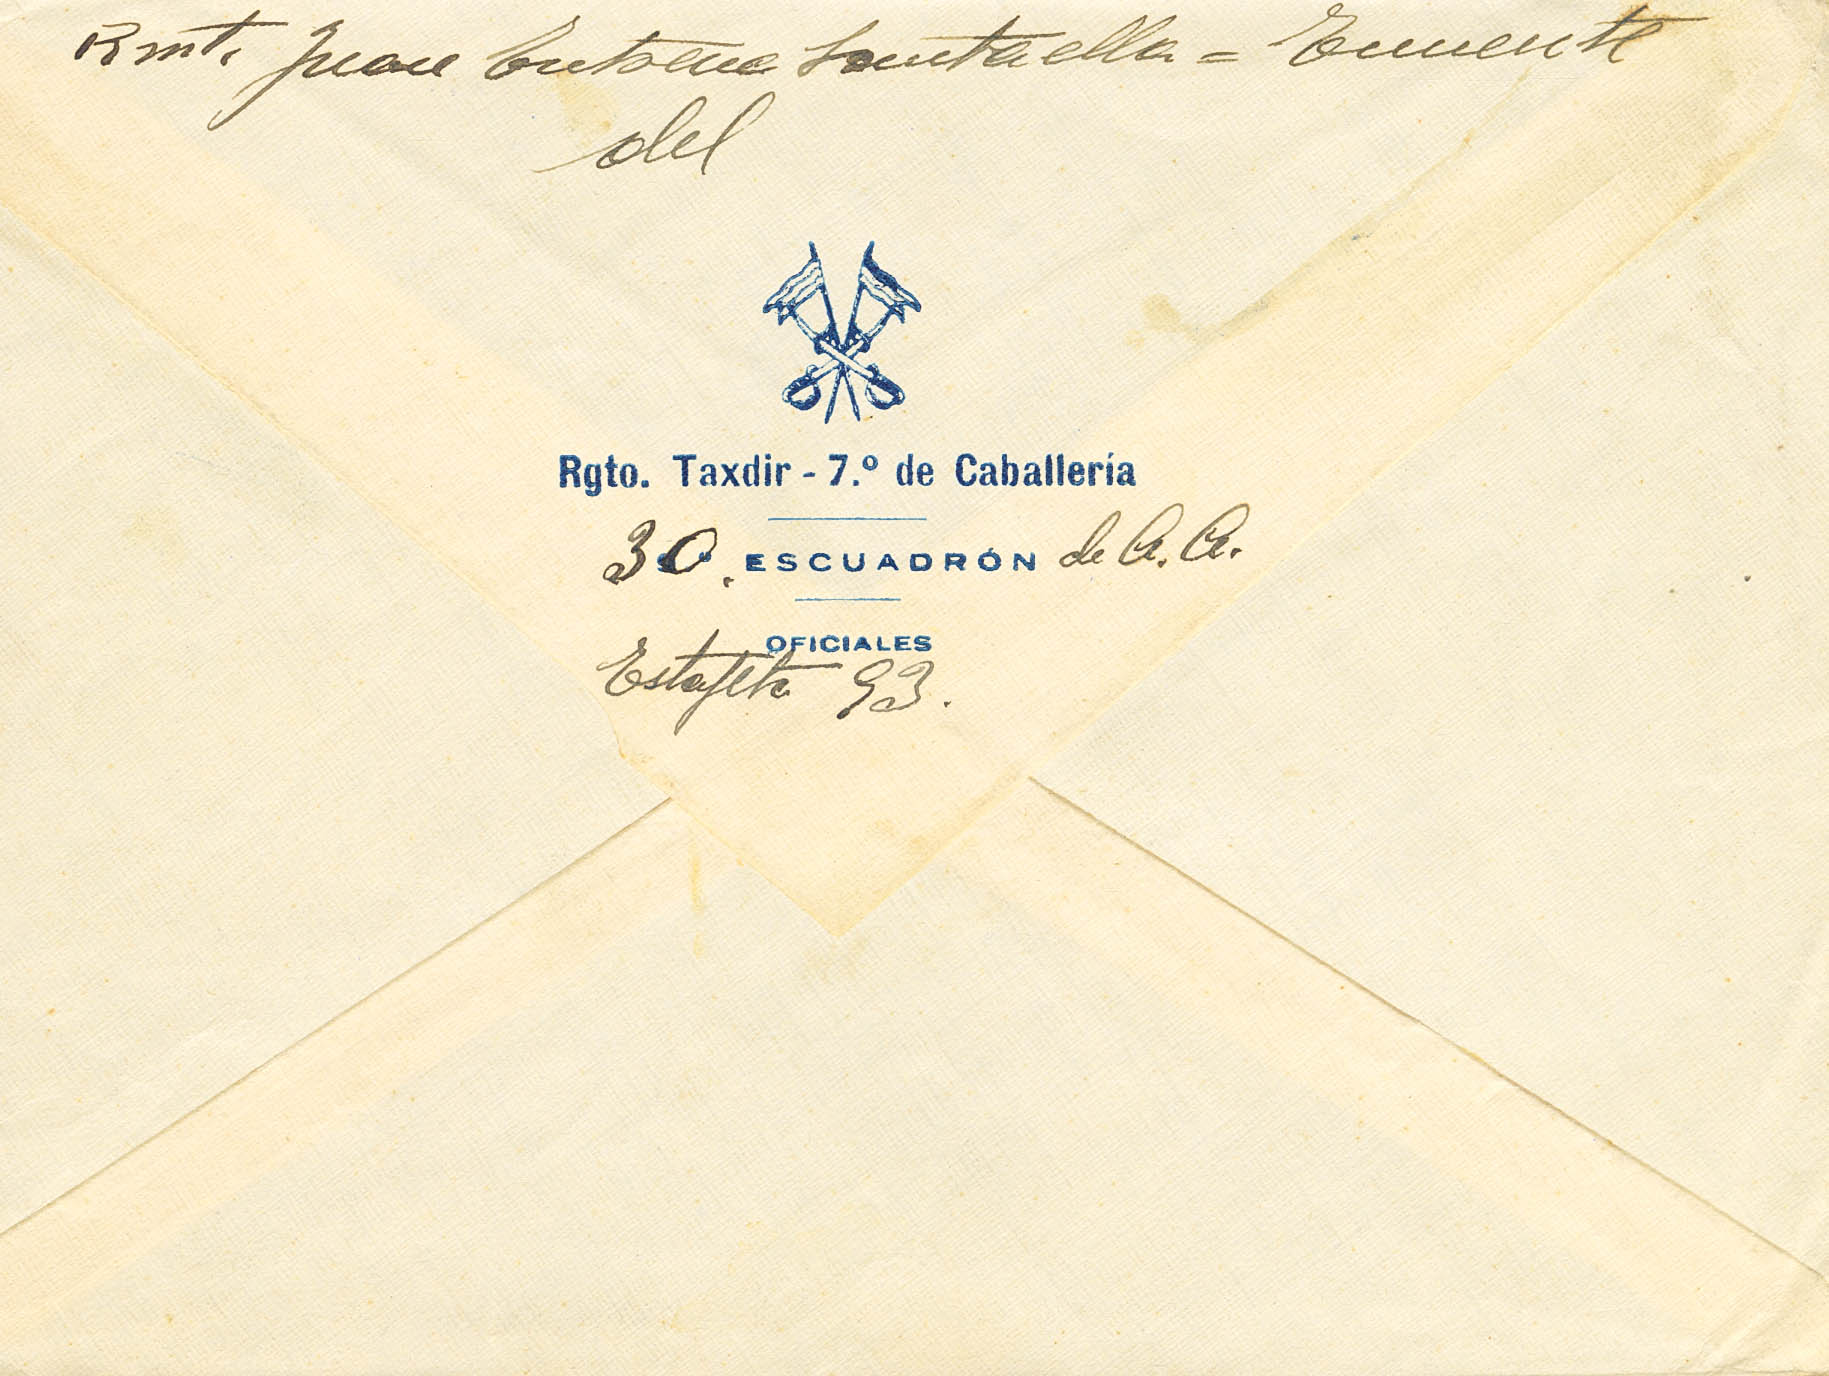 Rmt. Juan Antonio Santaella = Teniente
del
Rgto. Taxdir - 7.º de Caballería
30. ESCUADRÓN de A. A.
OFICIALES
Estafeta 93.